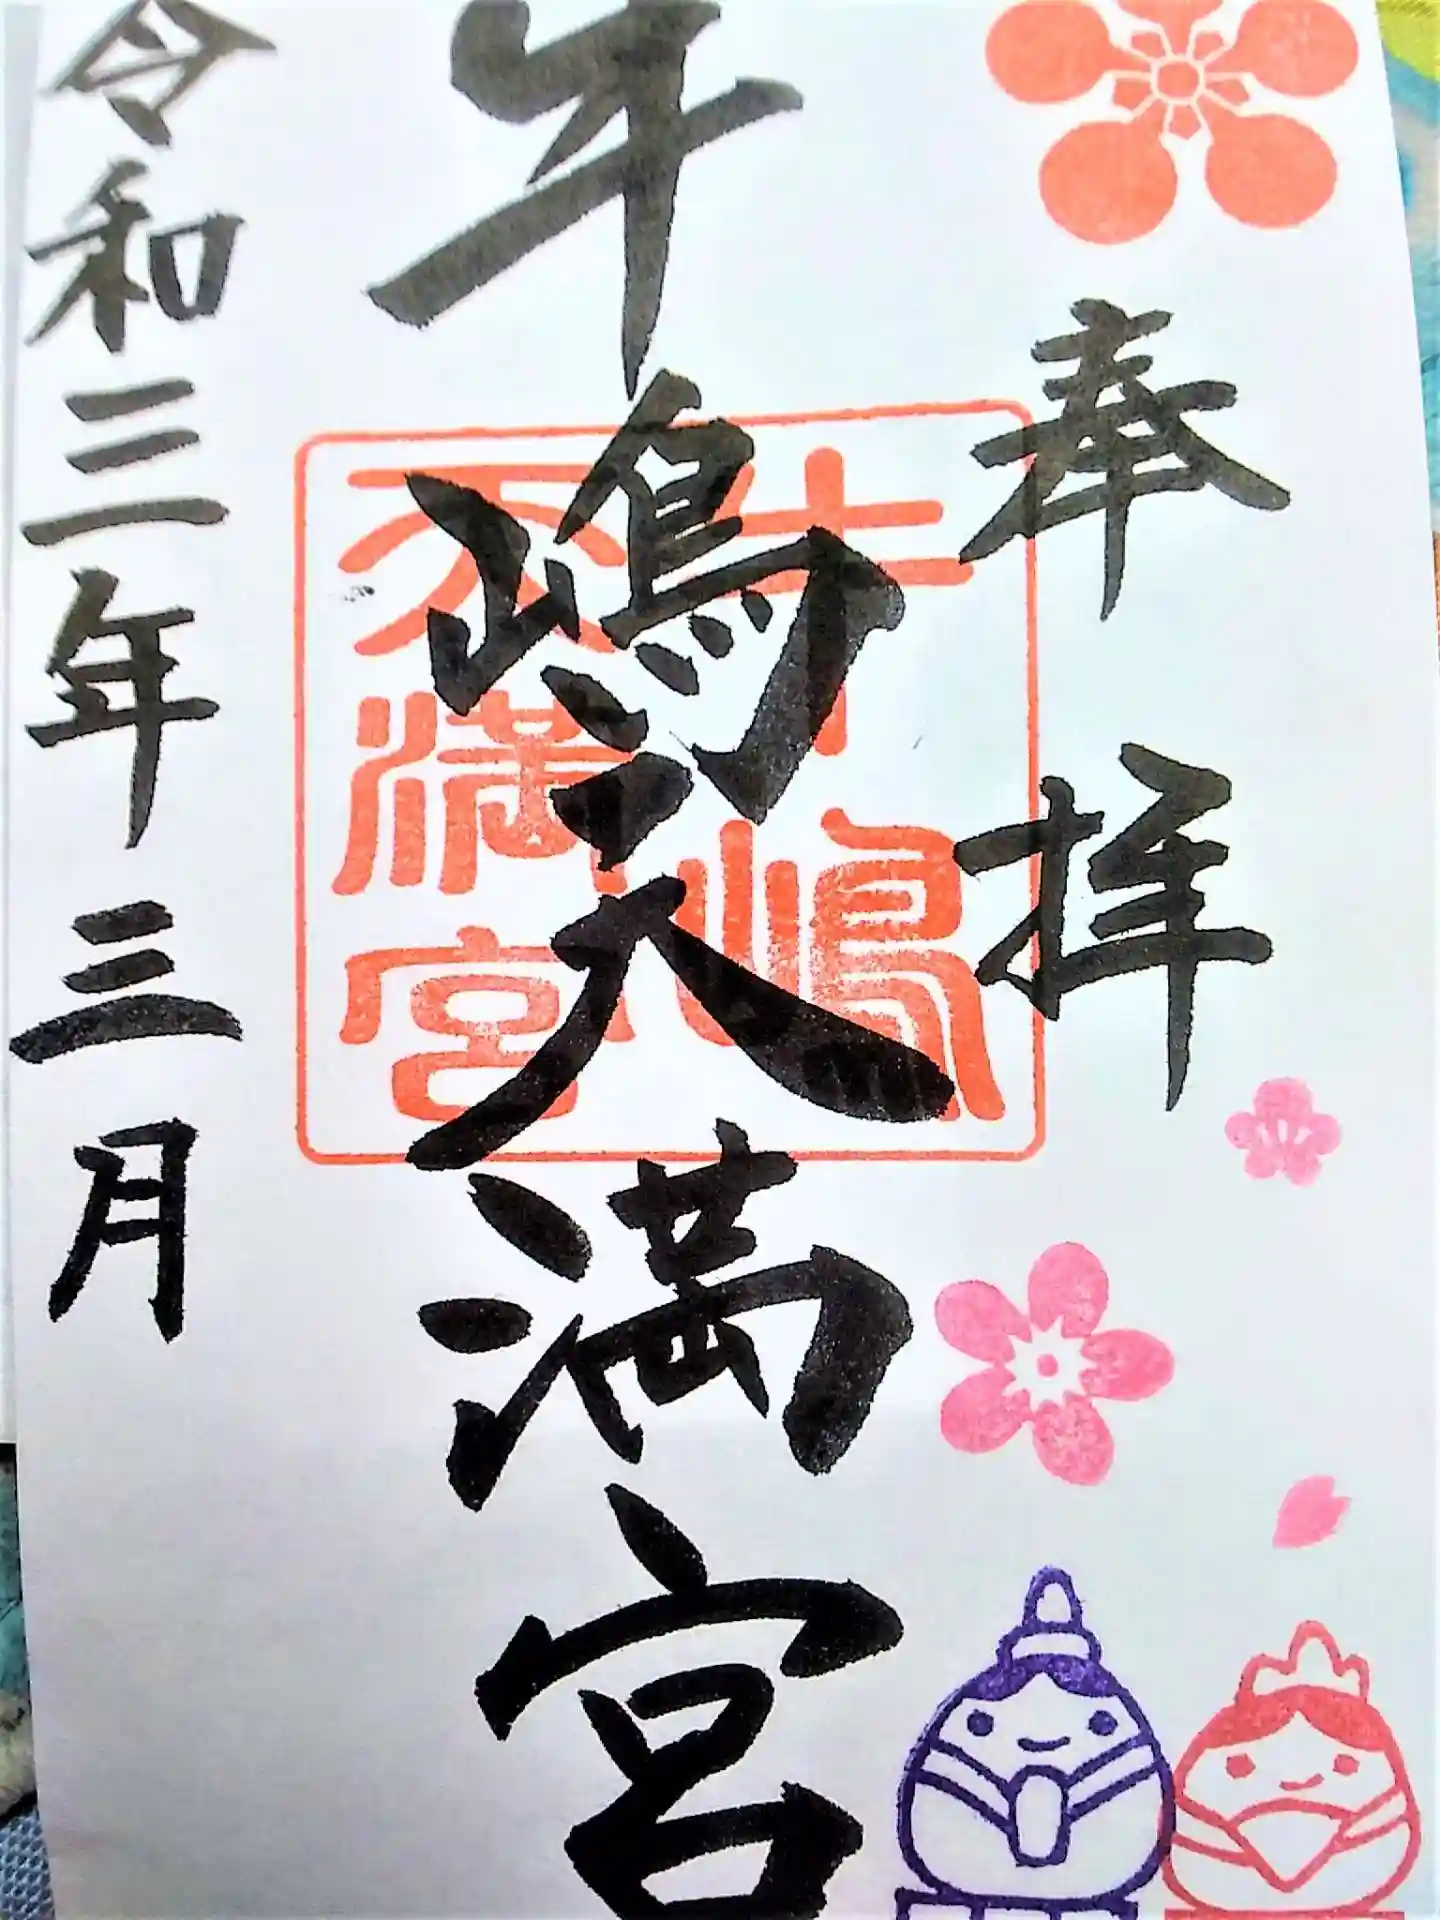 奉拝
牛嶋天満宮
牛嶋
天満宮
令和三年三月